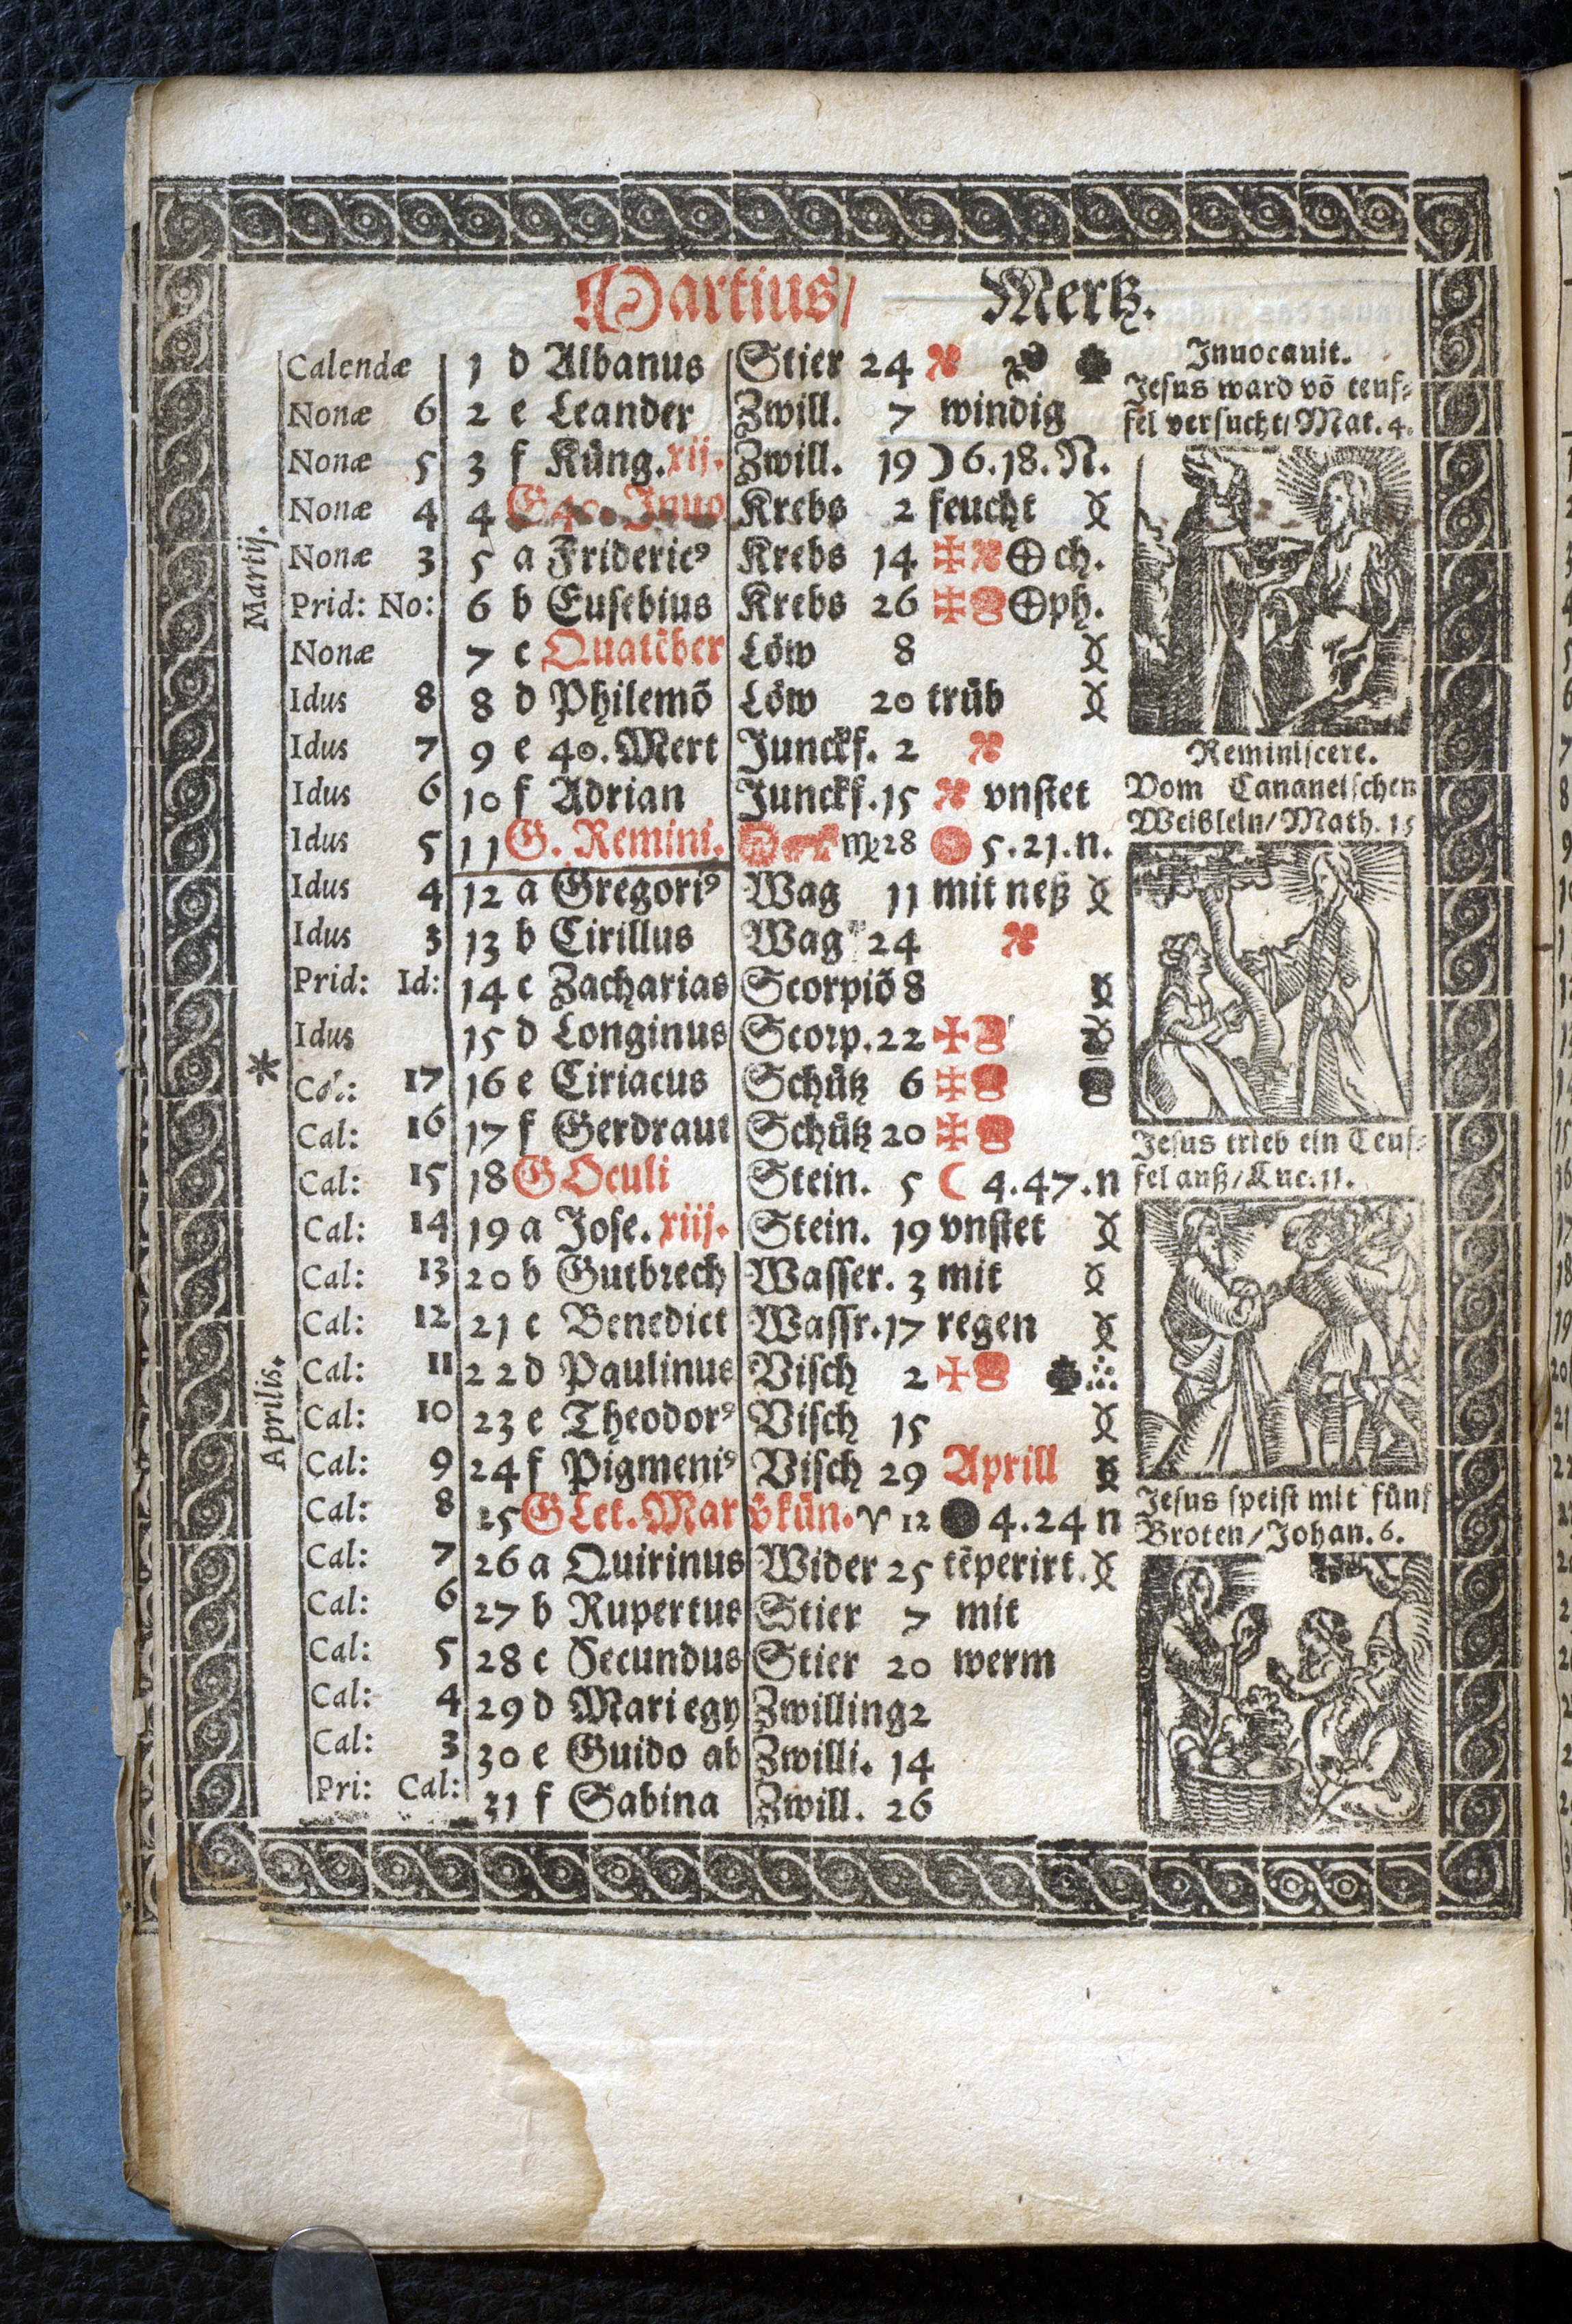 Martius/ Mertz.
Martij.
Calendæ 1 d Albanus Stier 24
Nonæ 6 2 e Leander Zwill. 7 windig
Nonæ 5 3 f Küng. xij. Zwill. 19 ☽ 6.18. N.
Nonæ 4 4 G 40. Inuo Krebs 2 feucht
Nonæ 3 5 a Frideric⁹ Krebs 14 ⊕ ch.
Prid: No: 6 b Eusebius Krebs 26 ⊕ ph.
Nonæ 7 c Quatẽber Löw 8
Idus 8 8 d Philemõ Löw 20 trüb
Idus 7 9 e 40. Mert Junckf. 2
Idus 6 10 f Adrian Junckf. 15 vnstet
Idus 5 11 G. Remini. ♍ 28 5.21.n.
Idus 4 12 a Gregori⁹ Wag 11 mit neß
Idus 3 13 b Cirillus Wag 24
Prid: Id: 14 c Zacharias Scorpiõ 8
Idus 15 d Longinus Scorp. 22
* Cal: 17 16 e Ciriacus Schütz 6
Cal: 16 17 f Gerdraut Schütz 20
Cal: 15 18 G Oculi Stein. 5 ☾ 4.47.n
Cal: 14 19 a Jose. xiij. Stein. 19 vnstet
Cal: 13 20 b Gutbrech Wasser. 3 mit
Cal: 12 21 c Benedict Wassr. 17 regen
Aprilis.
Cal: 11 22 d Paulinus Visch 2
Cal: 10 23 e Theodor⁹ Visch 15
Cal: 9 24 f Pigmeni⁹ Visch 29 Aprill
Cal: 8 25 G Let. Mar võkün. ♈ 12 ● 4.24 n
Cal: 7 26 a Quirinus Wider 25 tẽperirt.
Cal: 6 27 b Rupertus Stier 7 mit
Cal: 5 28 c Secundus Stier 20 werm
Cal: 4 29 d Mari egy Zwilling 2
Cal: 3 30 e Guido ab Zwilli. 14
Pri: Cal: 31 f Sabina Zwill. 26
Inuocauit.
Jesus ward võ teuf-
fel versucht/Mat. 4.
Reminiscere.
Vom Cananeischen
Weiblein/Math. 15
Jesus trieb ein Teuf-
fel auß/Luc. 11.
Jesus speist mit fünf
Broten/Johan. 6.